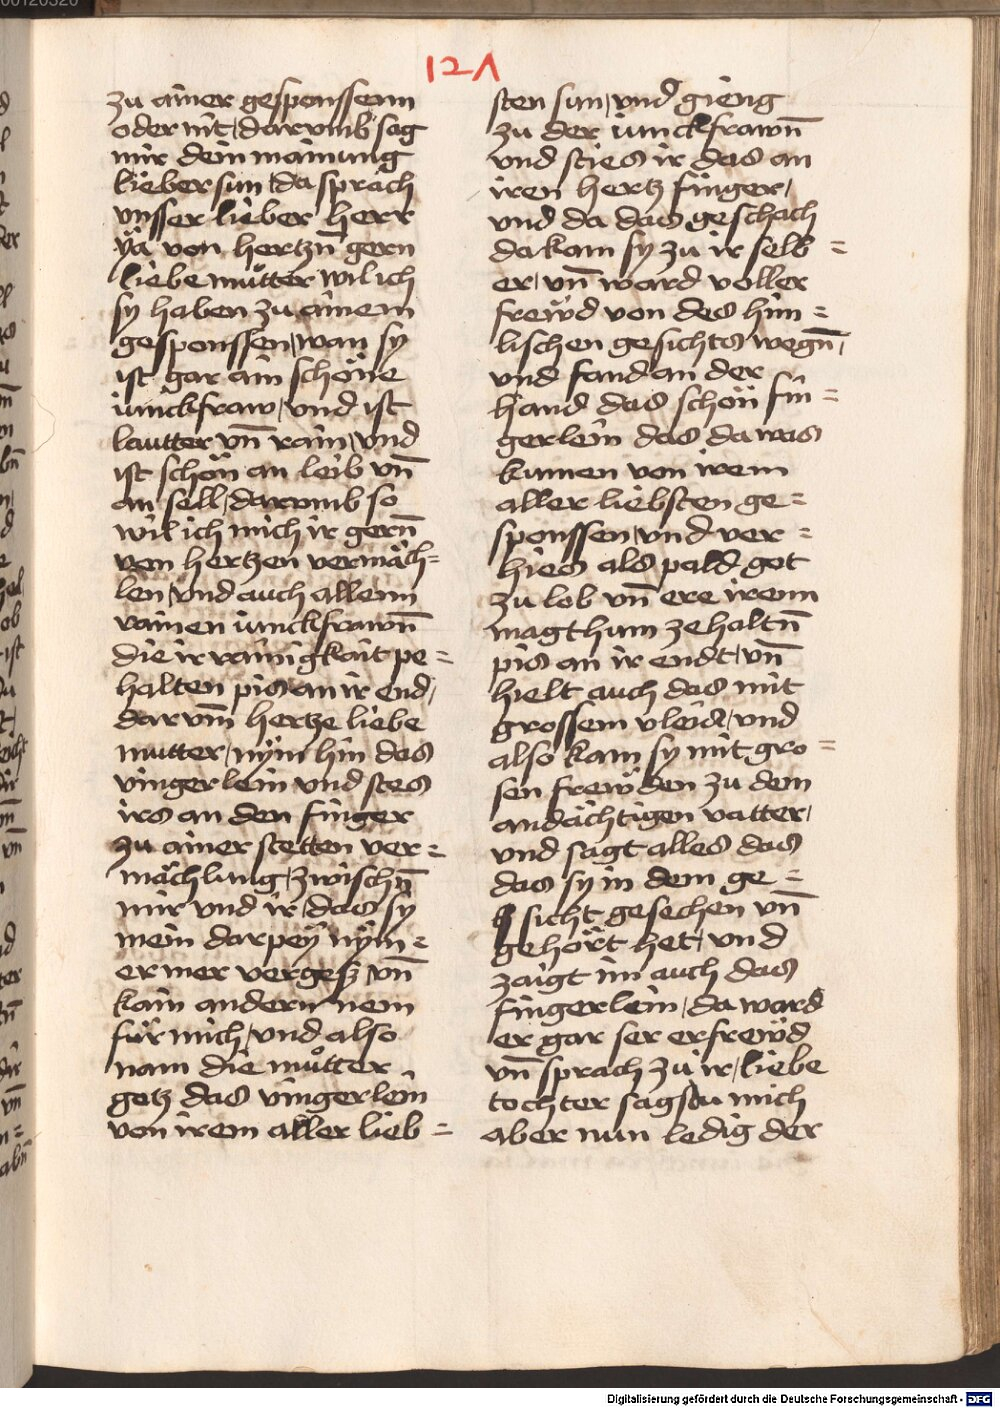 121
zu ainer gesponssenn
oder nit, darvmb sag
mir dein mainung
lieber sun, da sprach
vnsser lieber herr
ÿa von hertzn̄ gern
liebe muͦtter wil ich
sy haben zu ainem
gesponssen, wan sy
ist gar ain schöne
iunckfraw, vnd ist
lautter vn̄ rain, vnd
ist schön an leib vn̄
an sell, darvmb so
wil ich mich ir gern̄
von hertzen vermäch=
len, vnd auch allenn
rainen iunckfrawn̄
die ir rainigkait pe=
halten pis an ir end,
darvm̄ hertze liebe
mutter, nÿm hin das
vingerlein vnd stes
irs an den finger
zu ainer stetten ver=
mächlung, zwischn̄
mir vnd ir, das sÿ
mein darpeÿ nÿm=
er mer vergesz, vn̄
kain andern nem
für mich, vnd also
nam die muͦtter
gotz das vingerlein
von irem aller lieb=
sten sun, vnd gieng
zu der iunckfrawn̄
vnd sties ir das an
iren hertz finger,
vnd da das geschach
da kam sy zu ir selb=
er, vn̄ ward voller
frewd von des him=
lischen gesichts wegn̄,
vnd fand an der
hand das schön fin=
gerlein das da was
kumen von irem
aller liebsten ge=
sponssen, vnd ver=
hies als pald got
zu lob vn̄ ere irenn
magthum ze haltn̄
pis an ir endt, vn̄
hielt auch das mit
grossem vleis, vnd
also kam sy mit gro=
sen frewden zu dem
andächtigen vatter,
vnd sagt alles das
das sy in dem ge=
sicht gesechen vn̄
gehört het, vnd
zaigt im auch das
fingerlein, da ward
er gar ser erfrewd
vn̄ sprach zu ir, liebe
tochter sagstu mich
aber nun ledig der
Digitalisierung gefördert durch die Deutsche Forschungsgemeinschaft - DFG